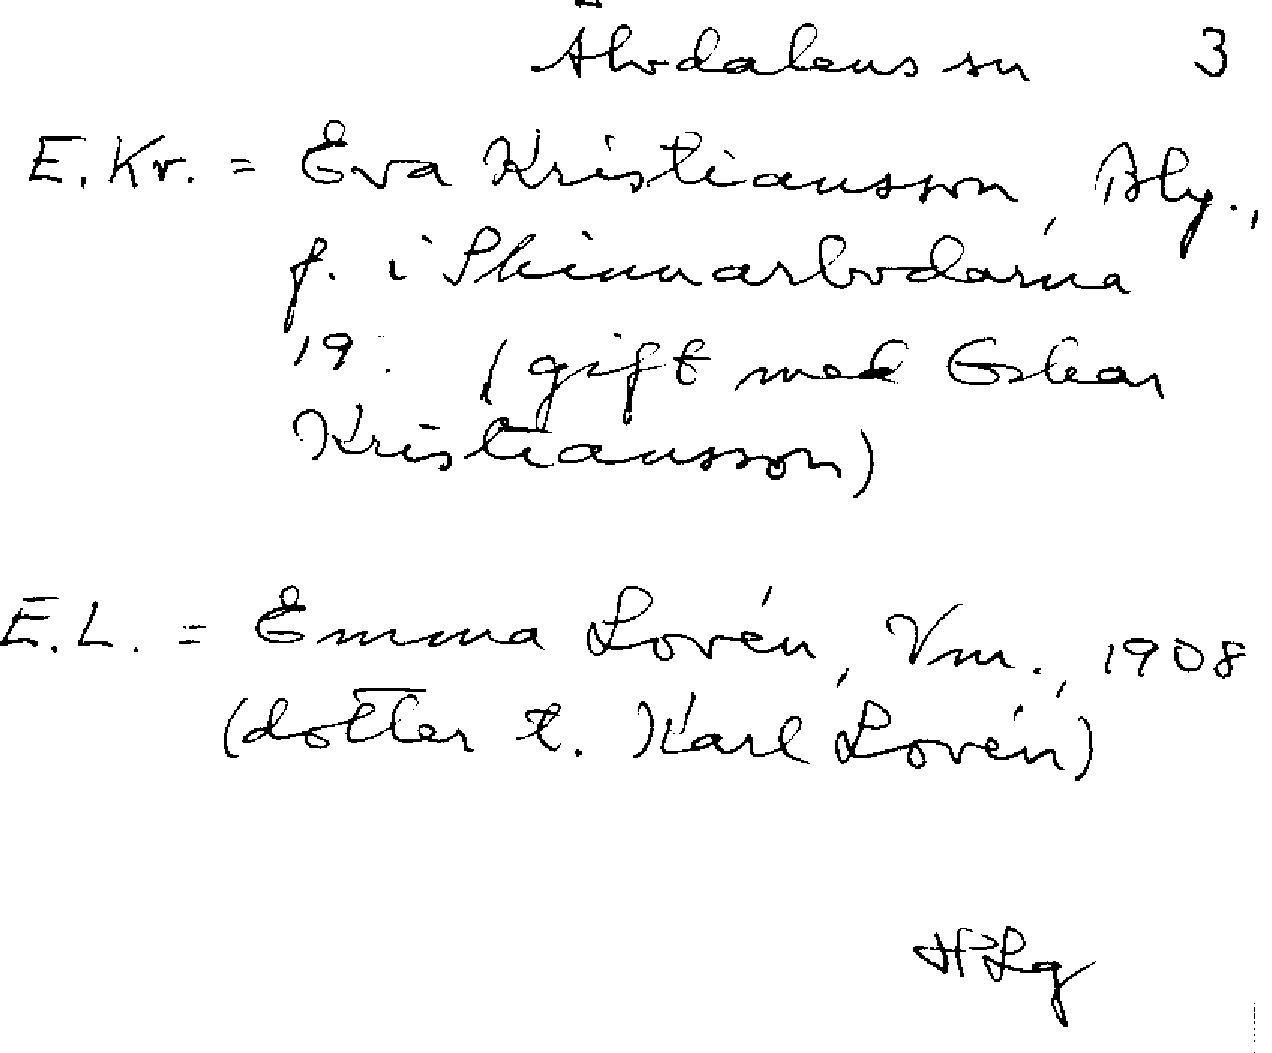 Älvdalens sn 3
E. Kr. = Eva Kristiansson, Bly.,
f. i Skinnarbodarna
19 . (gift med Oskar
Kristiansson)
E. L. = Emma Lovén, Vm., 1908
(dotter t. Karl Lovén)
HLg